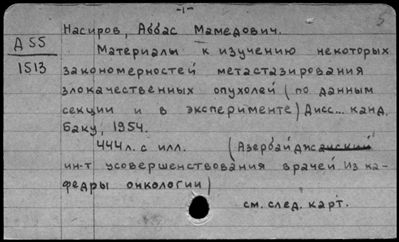 -1-
5
Насиров, Аббас Мамедович.
Д 55
1513
Материалы к изучению некоторых
закономерностей метастазирования
злокачественных опухолей (по данным
секции и в эксперименте) Дисс... канд.
Баку, 1954.
444 л. с илл. (Азербайджанский
ин-т усовершенствования врачей. Из ка-
федры онкологии)
см. след. карт.